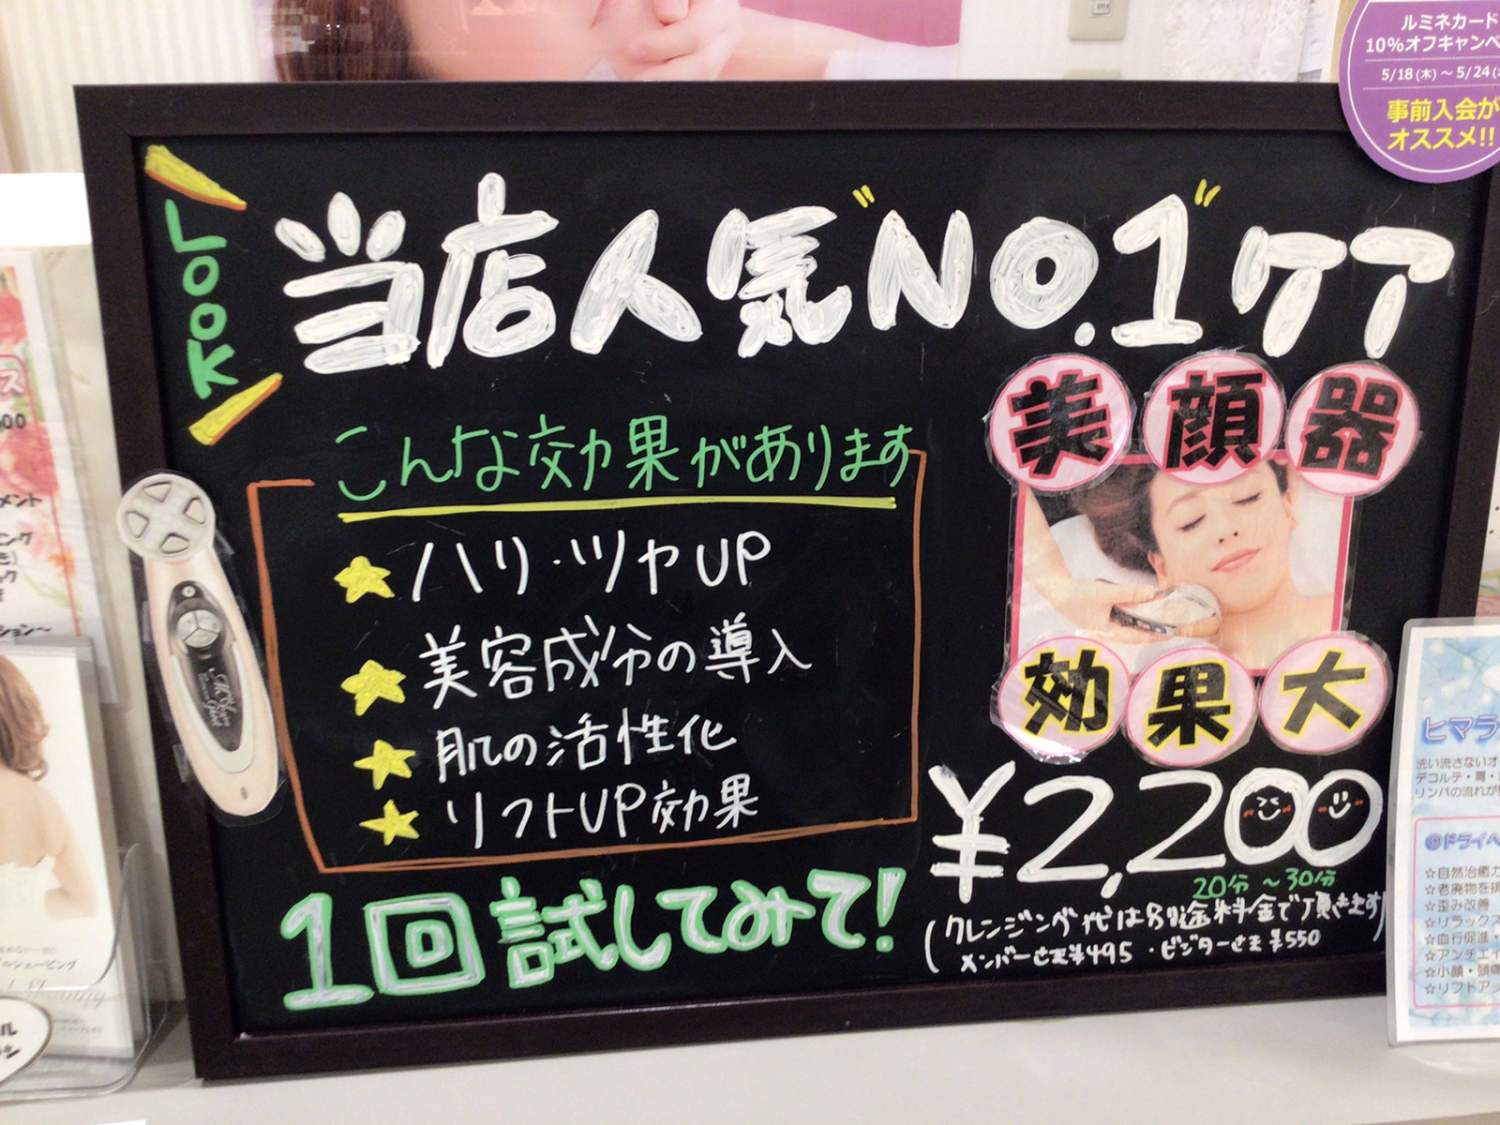 ルミネカード
10%オフキャンペ
5/18(木)～5/24(
事前入会が
オススメ!!
LOOK
当店人気"NO.1"ケア
美顔器
こんな効果があります
ハリ・ツヤUP
美容成分の導入
肌の活性化
リフトUP効果
効果大
¥2,200
20分～30分
(クレンジング代は別途料金で頂きます)
メンバーさま¥495・ビジターさま¥550
1回試してみて!
ヒマラ
洗い流さないオ
デコルテ・肩・
リンパの流れが
@ドライヘ
☆自然治癒力
☆老廃物を排
☆歪み改善
☆リラックス
☆血行促進・
☆アンチエイ
☆小顔・頭痛
☆リフトアッ
ス
00
メント
ング
ック
ション～
ルシェービング
ル